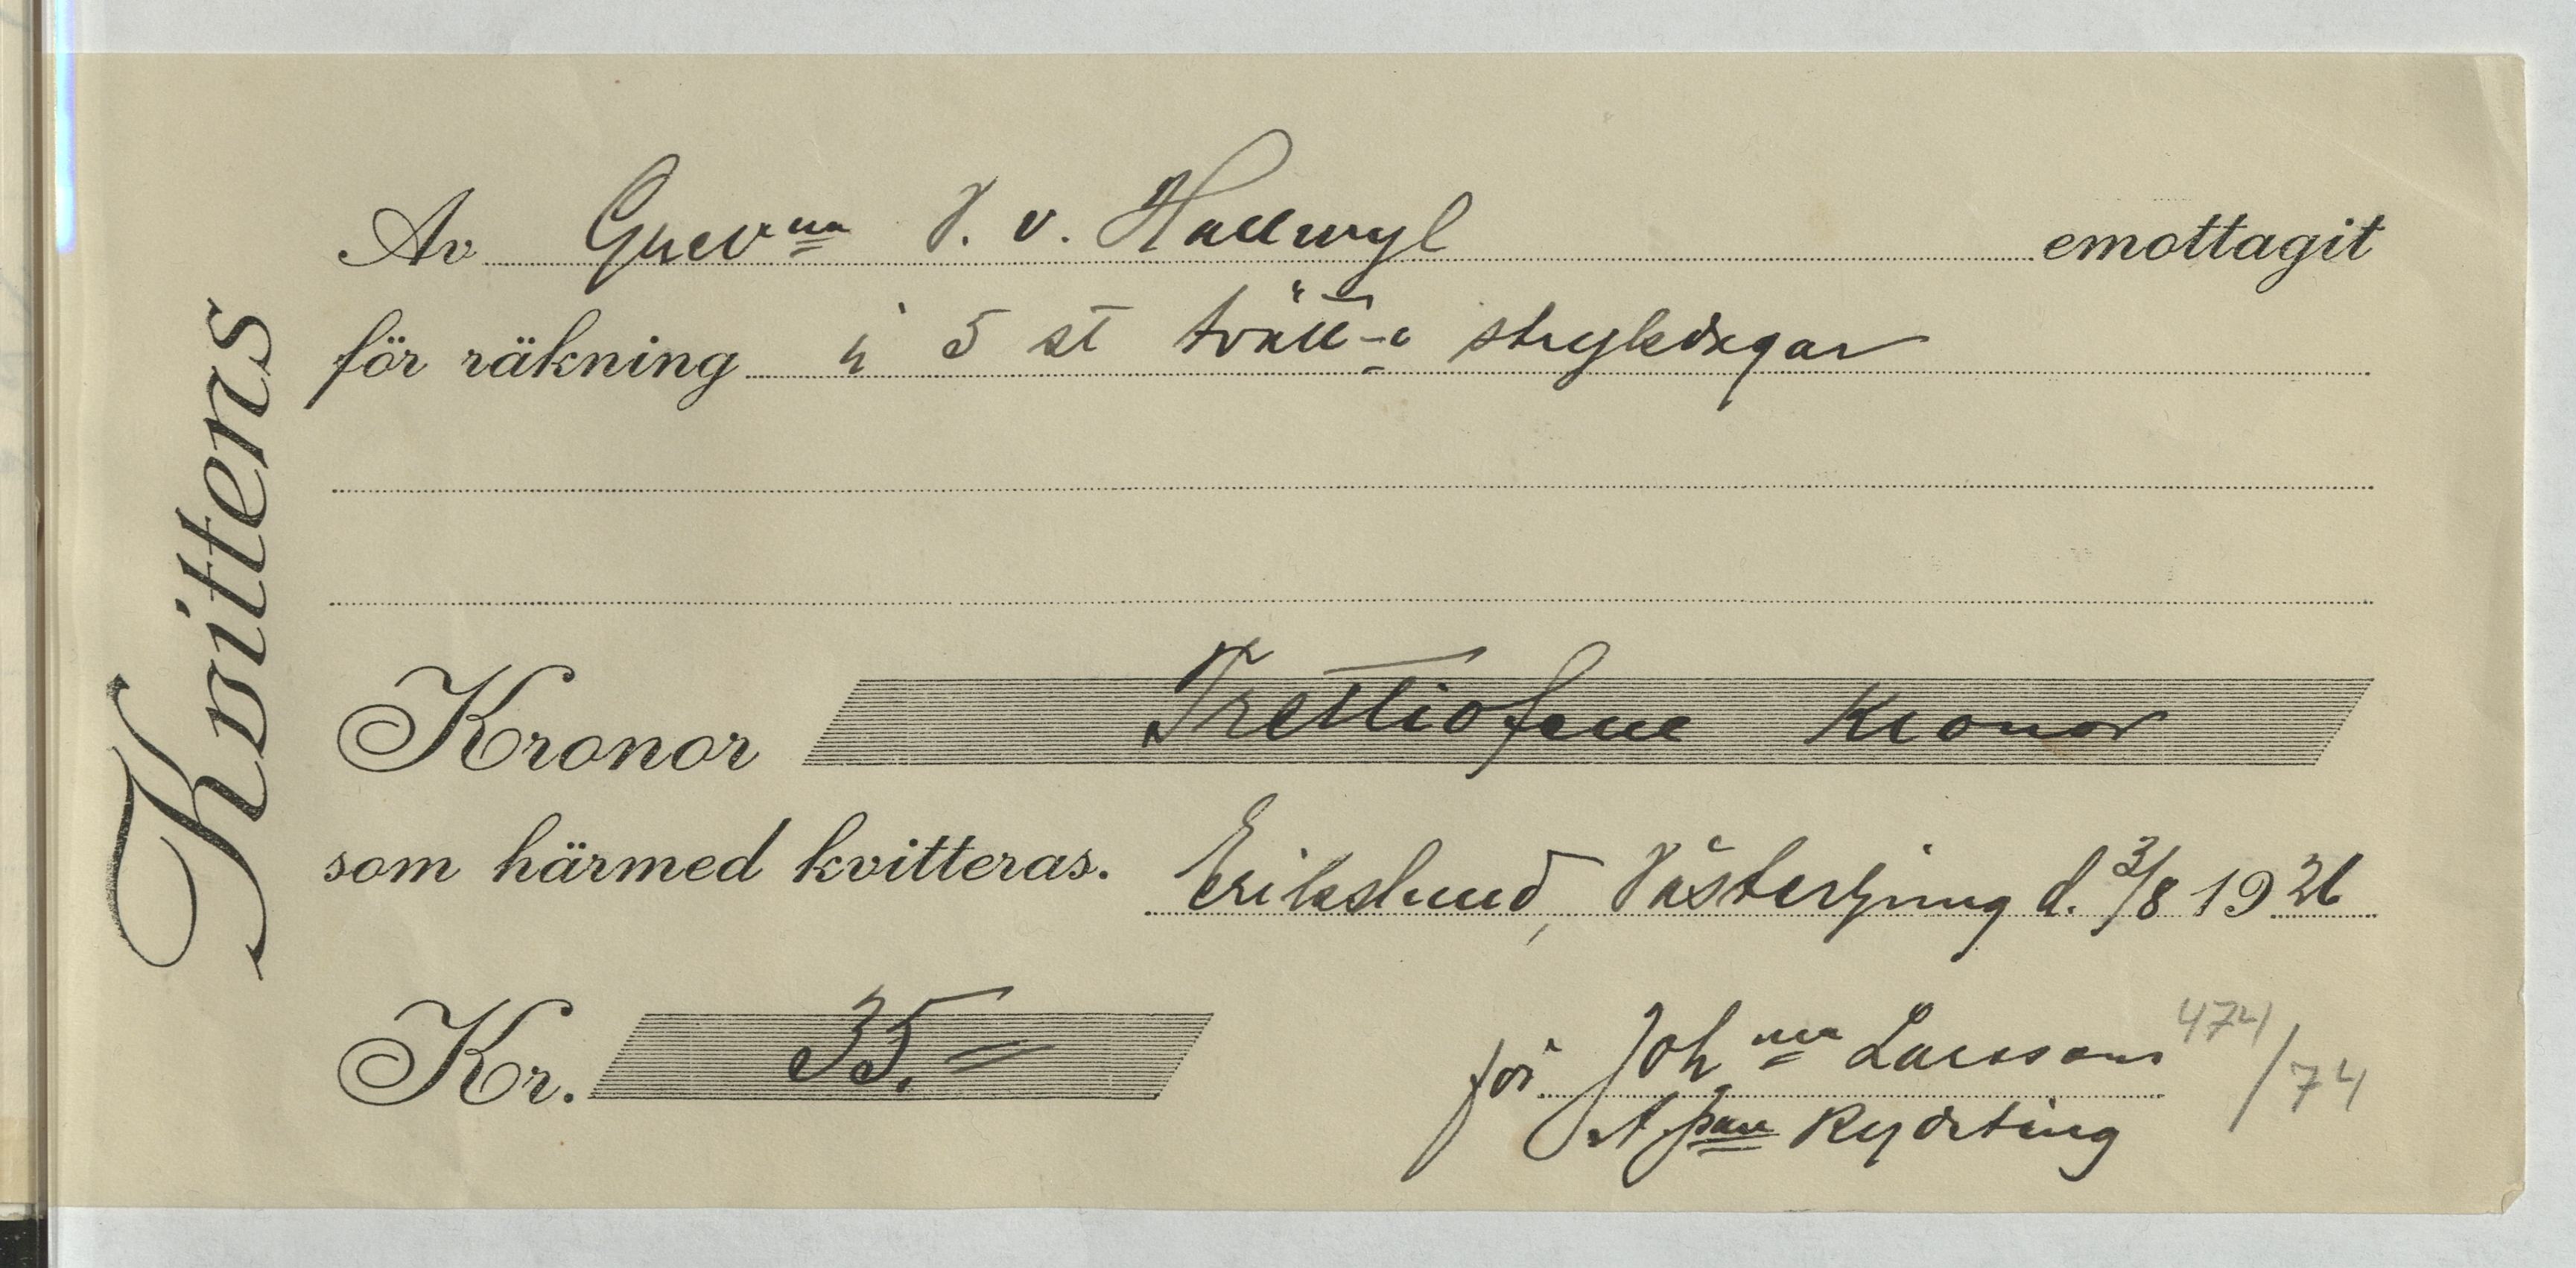 Kvittens
Av Grevna V. v. Hallwyl emottagit
för räkning i 5 st tvätt- o strykdagar
Kronor Trettiofem Kronor
som härmed kvitteras. Erikslund, Västerljung d. 3/8 1926
Kr. 35.=
för Johna Larsson 474/74
Rydsting